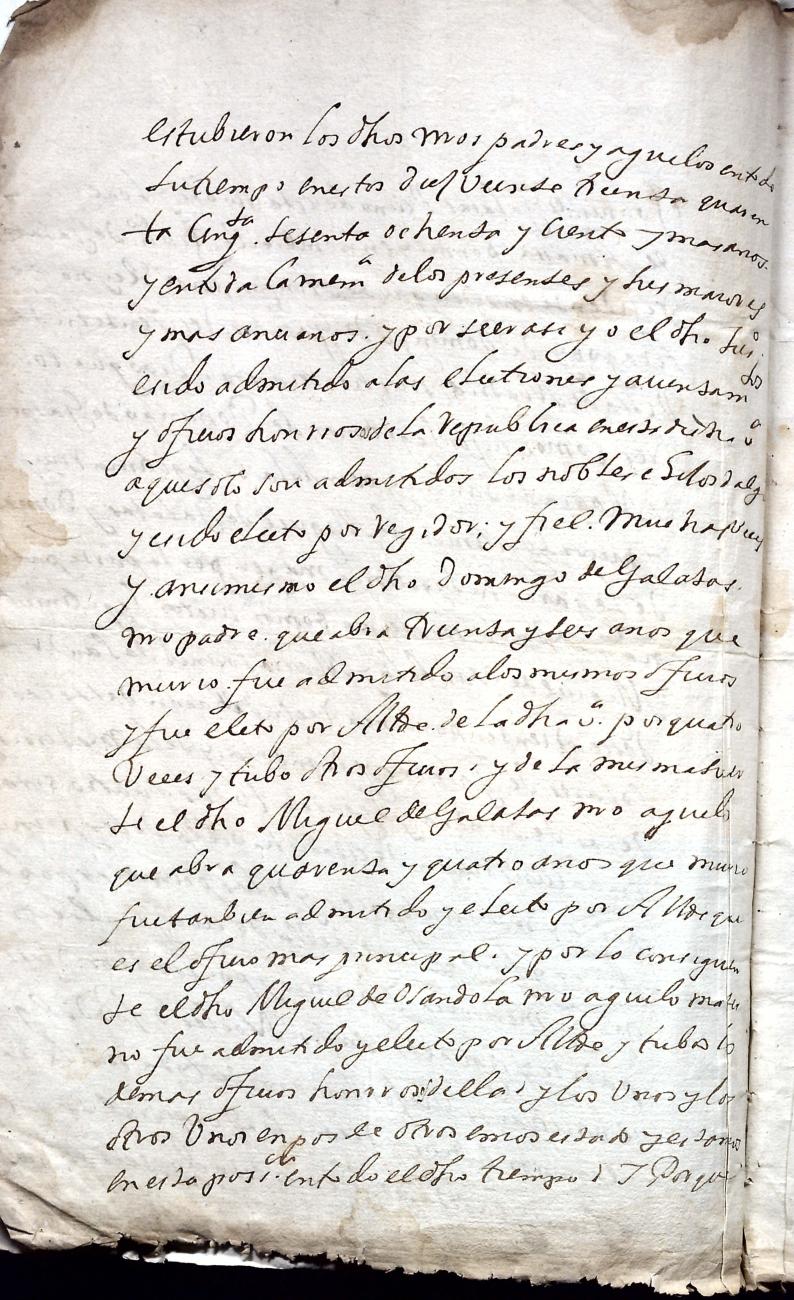 estubieron los dhos mros padres y aguelos en todo
su tiempo en estos diez Veinte treinta quaren
ta Cinqta. sesenta ochenta y Ciento y mas anos.
y en toda la mema de los presentes y sus maiores
y mas ancianos. y por ser asi yo el dho
e sido admitido a las electiones y aiuntam
y ofiçios honrrosos de la Republica en esta dicha va
a que solo son admitidos los nobles e hijosdalgo
y e sido electo por Regidor; y fiel. muchas Veces
y ansimismo el dho Domingo de Galatas.
mro padre. que abra treinta y seis anos que
murio. fue admitido a los mismos ofiçios
y fue eleto por Allde. de la dha va. por quatro
Veces y tubo otros ofiçios. y de la misma suer
te el dho Miguel de Galatas mro aguelo
que abra quarenta y quatro anos que murio
fue tanbien admitido y eleeto por Allde que
es el ofiçio mas principal. y por lo consiguien
te el dho Miguel de Osandola mro aguelo mater
no fue admitido y eleeto por Allde y tubo los
demas ofiçios honrrosos della. y los Unos y los
otros Unos en pos de otros emos estado y estamos
en esta posson. en todo el dho tiempo Y Porque